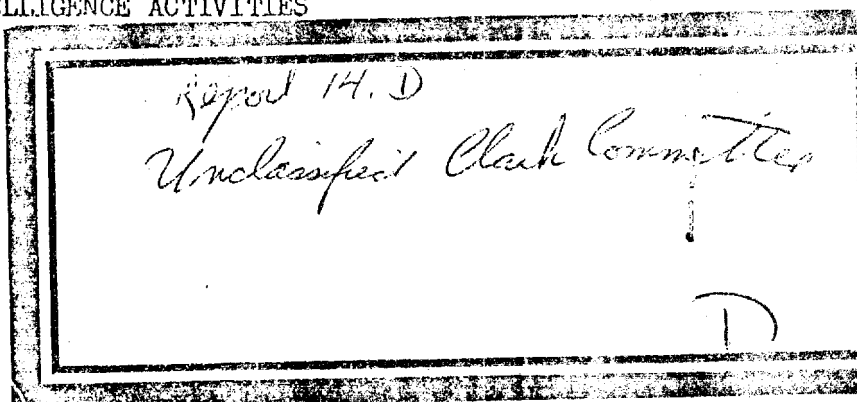 LLIGENCE ACTIVITIES
Report 14. D
Unclassified Clark Committee
D